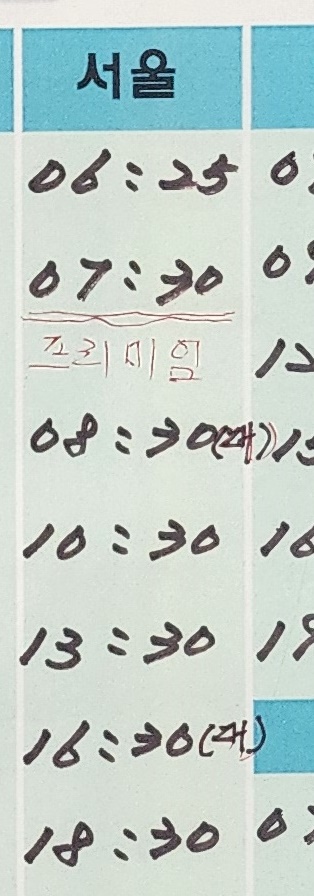 서울
06:25
07:30
프리미엄
08:30
10:30
13:30
16:30
18:30